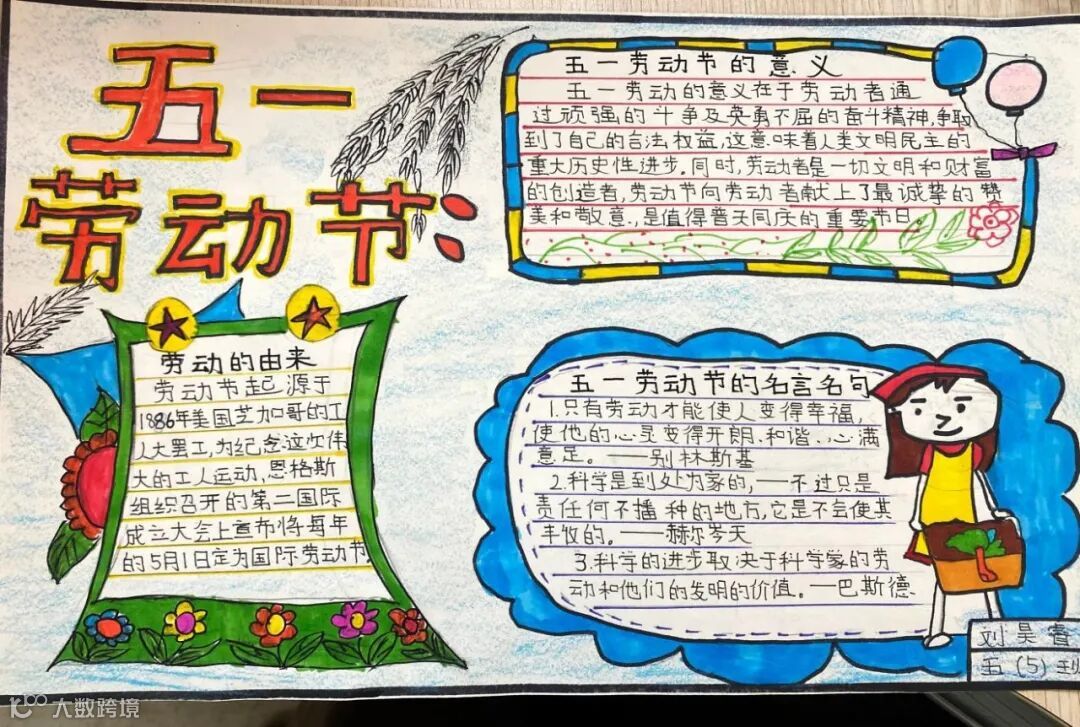 五一
劳动节:
五一劳动节的意义
五一劳动的意义在于劳动者通
过顽强的斗争及英勇不屈的奋斗精神,争取
到了自己的合法权益,这意味着人类文明民主的
重大历史性进步.同时,劳动者是一切文明和财富
的创造者,劳动节向劳动者献上了最诚挚的赞
美和敬意,是值得普天同庆的重要节日。
劳动的由来
劳动节起源于
1886年美国芝加哥的工
人大罢工,为纪念这次伟
大的工人运动,恩格斯
组织召开的第二国际
成立大会上宣布将每年
的5月1日定为国际劳动节
五一劳动节的名言名句
1.只有劳动才能使人变得幸福,
使他的心灵变得开朗.和谐.心满
意足。——别林斯基
2.科学是到处为家的,——不过只是
责任何不播种的地方,它是不会使其
丰牧的。——赫尔岑天
3.科学的进步取决于科学家的劳
动和他们的发明的价值。—巴斯德.
刘昊睿
五(5)班
大数跨境